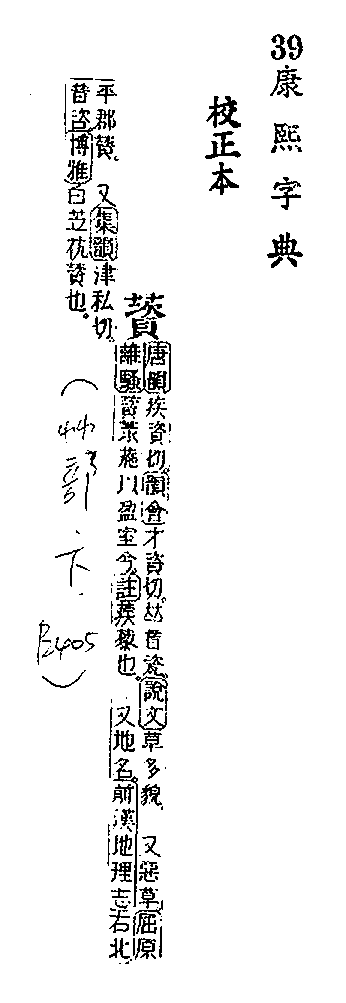 39康熙字典
校正本
薋
唐韻疾資切。韻會才資切。𠀤音瓷。說文草多貌 又惡草屈原
離騷薋菉葹以盈室兮。註蒺藜也。 又地名。前漢地理志右北
平郡薋。 又集韻津私切。
音咨博雅白芷茪薋也。
(艸部.下.P2405)